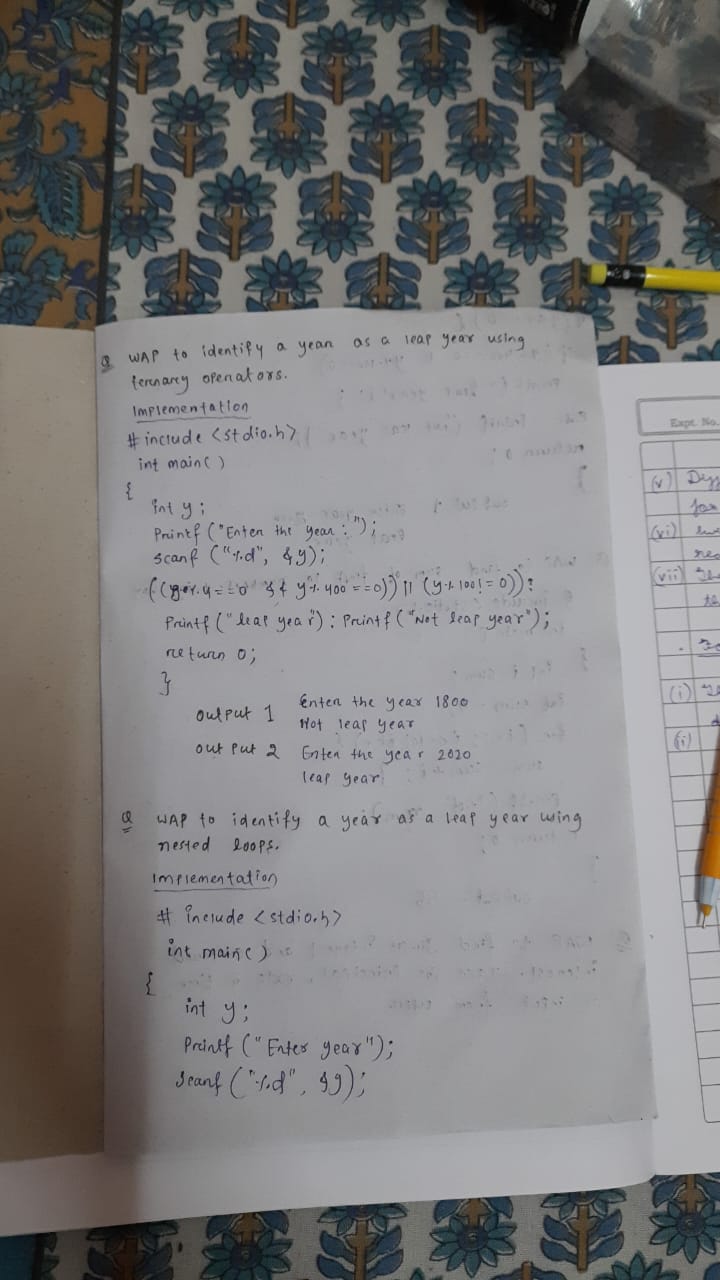 Q WAP to identify a year as a leap year using
ternary operators.
Implementation
# include <stdio.h>
int main()
{
int y;
Printf ("Enter the year : ");
scanf ("%d", &y);
y%400 ==0)) || (y%100!=0))?
Printf ("leap year") : Printf ("Not leap year");
return 0;
}
output 1 Enter the year 1800
Not leap year
out put 2 Enter the year 2020
leap year
Q WAP to identify a year as a leap year using
nested loops.
Implementation
# include <stdio.h>
int main()
{
int y;
Printf ("Enter year");
Scanf ("%d", &y);
Expt. No.
(v)
for
(vi)
(vii)
(i)
(ii)